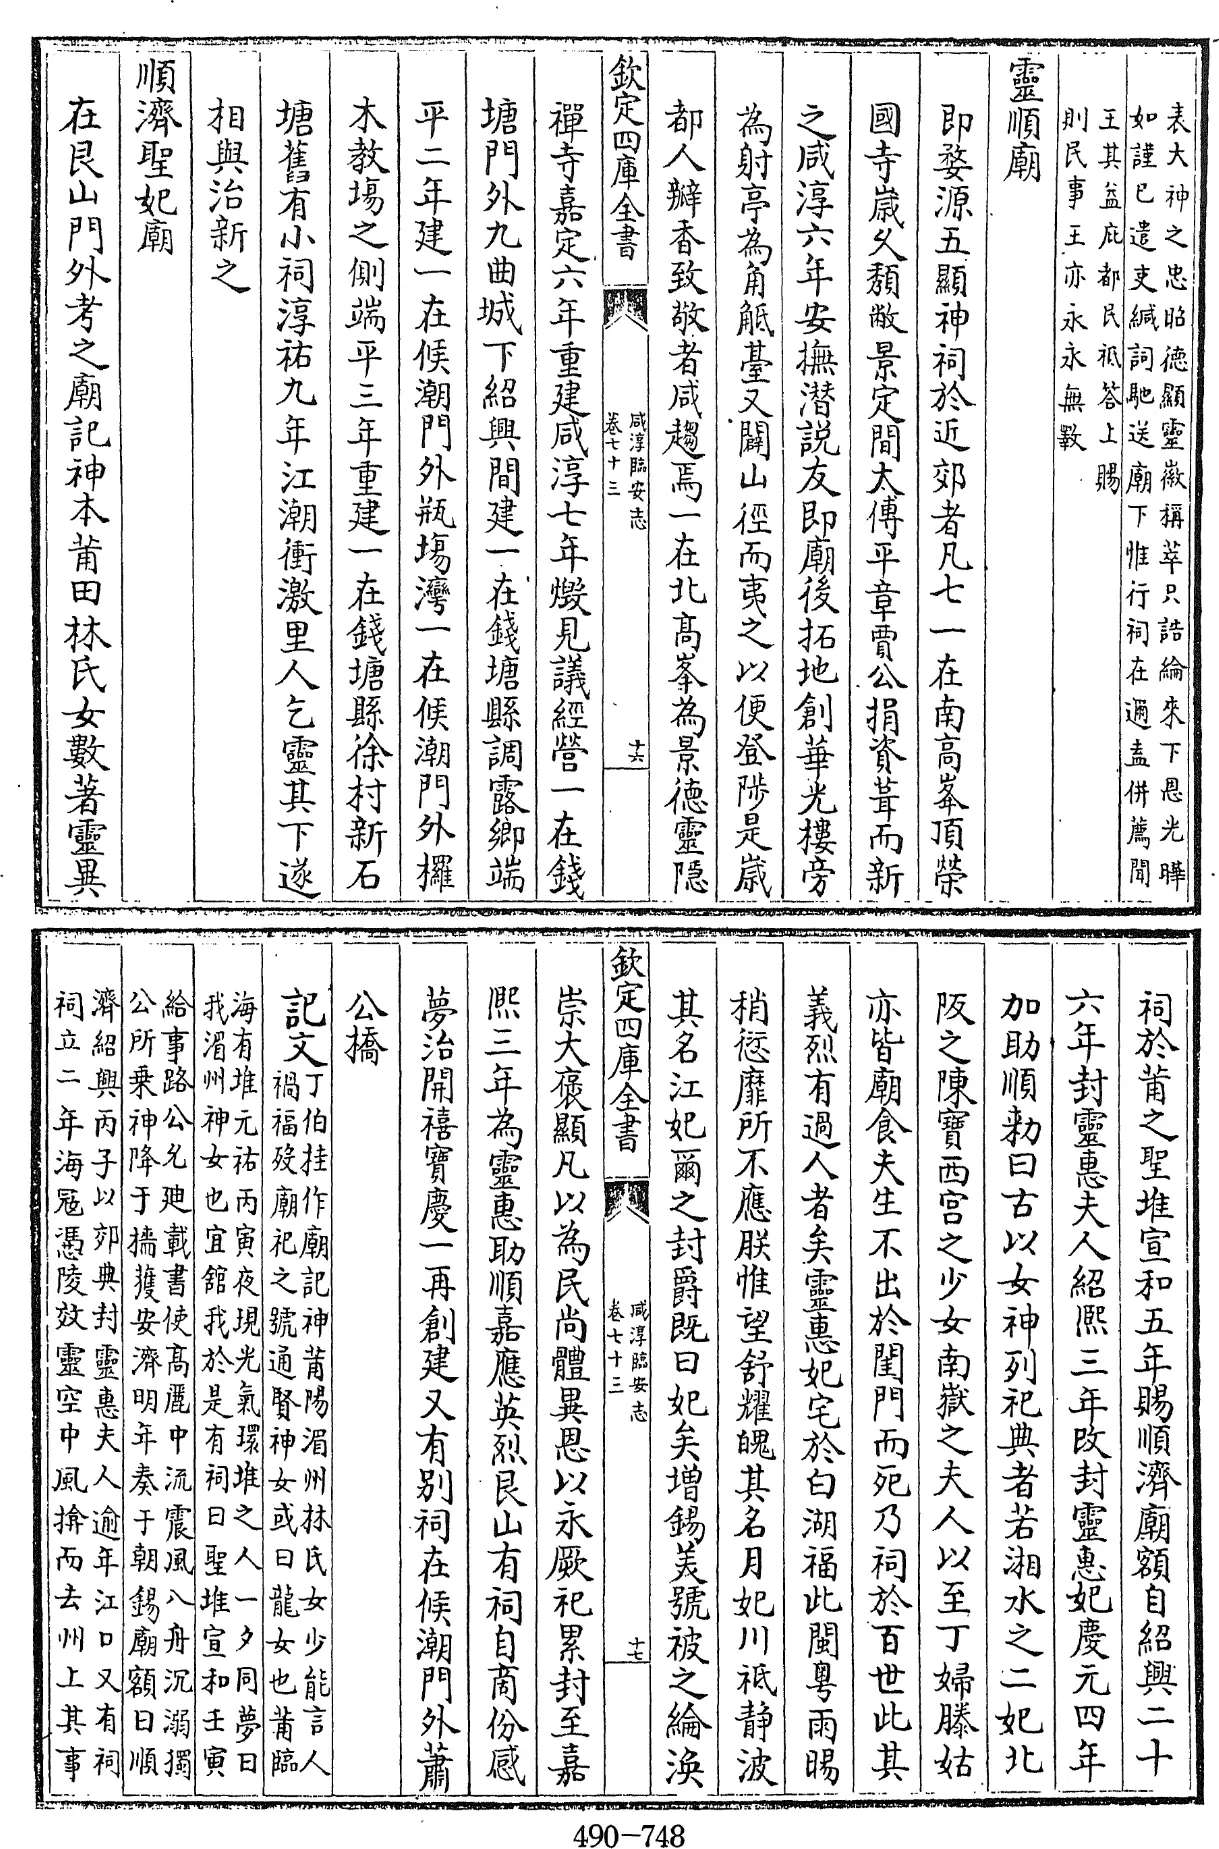 表大神之忠昭德顯靈徽稱萃只誥綸來下恩光曄
如謹已遣吏緘詞馳送廟下惟行祠在邇盍併薦聞
王其益庇都民祗答上賜
則民事王亦永永無斁
靈順廟
即婺源五顯神祠於近郊者凡七一在南高峯頂榮
國寺歳久頽敝景定間太傅平章賈公捐資葺而新
之咸淳六年安撫潜說友即廟後拓地創華光樓旁
為射亭為角觝臺又闢山徑而夷之以便登陟是歳
都人瓣香致敬者咸趨焉一在北高峯為景德靈隠
欽定四庫全書
咸淳臨安志
卷七十三
十六
禪寺嘉定六年重建咸淳七年燬見議經營一在錢
塘門外九曲城下紹興間建一在錢塘縣調露鄉端
平二年建一在候潮門外瓶塲灣一在候潮門外䆉
木教塲之側端平三年重建一在錢塘縣徐村新石
塘舊有小祠淳祐九年江潮衝激里人乞靈其下遂
相與治新之
順濟聖妃廟
在艮山門外考之廟記神本莆田林氏女數著靈異
祠於莆之聖堆宣和五年賜順濟廟額自紹興二十
六年封靈惠夫人紹熙三年改封靈惠妃慶元四年
加助順勅曰古以女神列祀典者若湘水之二妃北
阪之陳寶西宮之少女南嶽之夫人以至丁婦滕姑
亦皆廟食夫生不出於閨門而死乃祠於百世此其
義烈有過人者矣靈惠妃宅於白湖福此閩粤雨暘
稍愆靡所不應朕惟望舒耀魄其名月妃川祗静波
其名江妃爾之封爵既曰妃矣增錫美號被之綸渙
欽定四庫全書
咸淳臨安志
卷七十三
十七
崇大褒顯凡以為民尚體異恩以永厥祀累封至嘉
熙三年為靈惠助順嘉應英烈艮山有祠自商份感
夢治開禧寶慶一再創建又有别祠在候潮門外蕭
公橋
記文
丁伯挂作廟記神莆陽湄州林氏女少能言人
禍福歿廟祀之號通賢神女或曰龍女也莆臨
海有堆元祐丙寅夜現光氣環堆之人一夕同夢曰
我湄州神女也宜館我於是有祠曰聖堆宣和壬寅
給事路公允廸載書使高麗中流震風八舟沉溺獨
公所乗神降于檣獲安濟明年奏于朝錫廟額曰順
濟紹興丙子以郊典封靈惠夫人逾年江口又有祠
祠立二年海冦憑陵效靈空中風揜而去州上其事
490-748